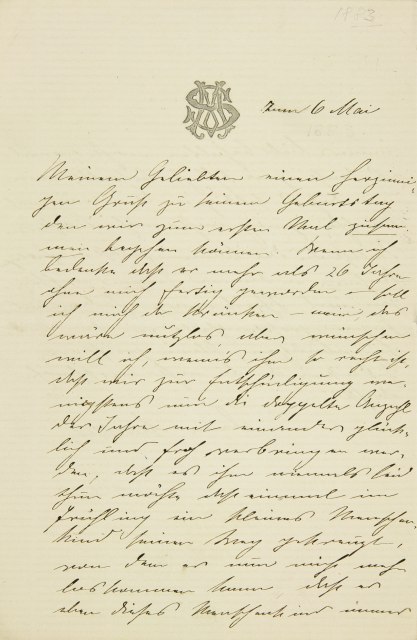 1883
zum 6 Mai
Meinem Geliebten einen herzinni-
gen Gruß zu seinem Geburtstag
den wir zum ersten Mal zusam-
men begehen können. Wenn ich
bedenke daß er mehr als 26 Jahre
ohne mich fertig geworden – soll
ich mich da kränken – nein, das
wäre nutzlos, aber wünschen
will ich, wenns ihm so recht ist,
daß wir zur Entschädigung we-
nigstens nun die doppelte Anzahl
der Jahre mit einander glück-
lich und froh verbringen wer-
den, daß es ihm niemals leid
thun möchte daß einmal im
Frühling ein kleines Menschen-
kind seinen Weg gekreuzt,
von dem er nun nicht mehr
loskommen kann, daß er
eben dieses Menschenkind immer